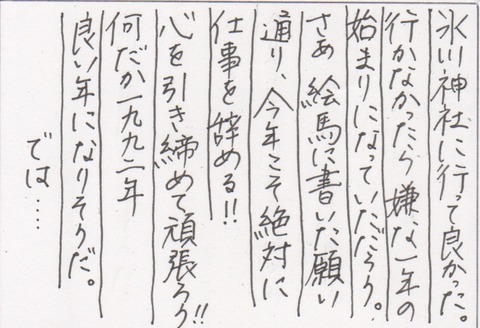 氷川神社に行って良かった。
行かなかったら嫌な一年の
始まりになっていただろう。
さあ絵馬に書いた願い
通り、今年こそ絶対に
仕事を辞める!!
心を引き締めて頑張ろう!!
何だか一九九二年
良い年になりそうだ。
では……